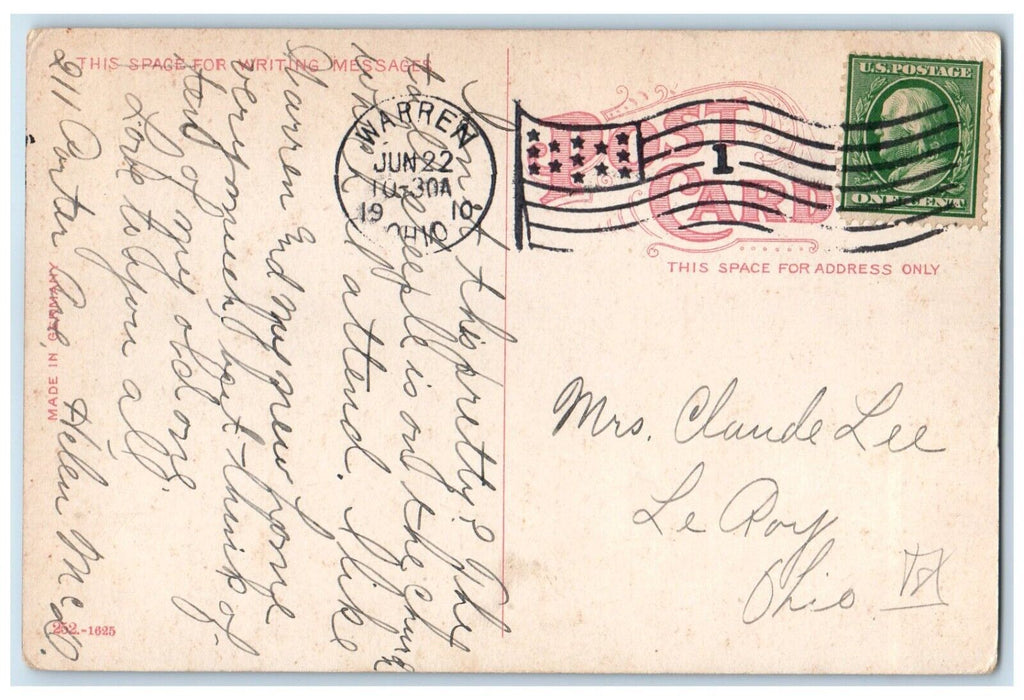 THIS SPACE FOR WRITING MESSAGES
Isn't this pretty? The
tall steeple is on the church
which I attend. I like
Warren and my new home
very much but think of-
ten of my old one.
Love to you all,
Helen McC.
211 Porter Ave,
MADE IN GERMANY
252.-1625
WARREN
JUN 22
10-30A
19 10
OHIO
1
POST
CARD
U.S. POSTAGE
ONE CENT
THIS SPACE FOR ADDRESS ONLY
Mrs. Claude Lee
Le Roy
Ohio